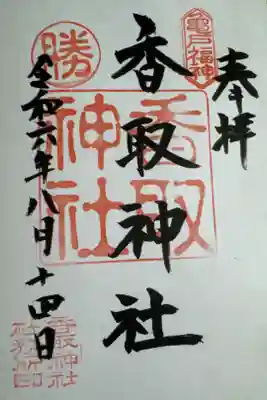 奉拝
亀戸福神
香取神社
香取神社
勝
令和六年八月十四日
香取神社
社務所印